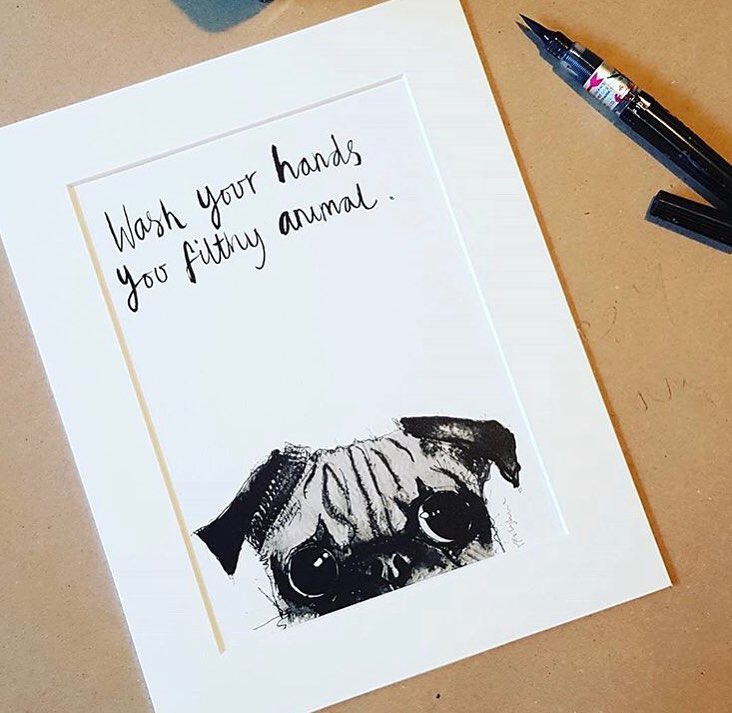 Wash your hands
you filthy animal.